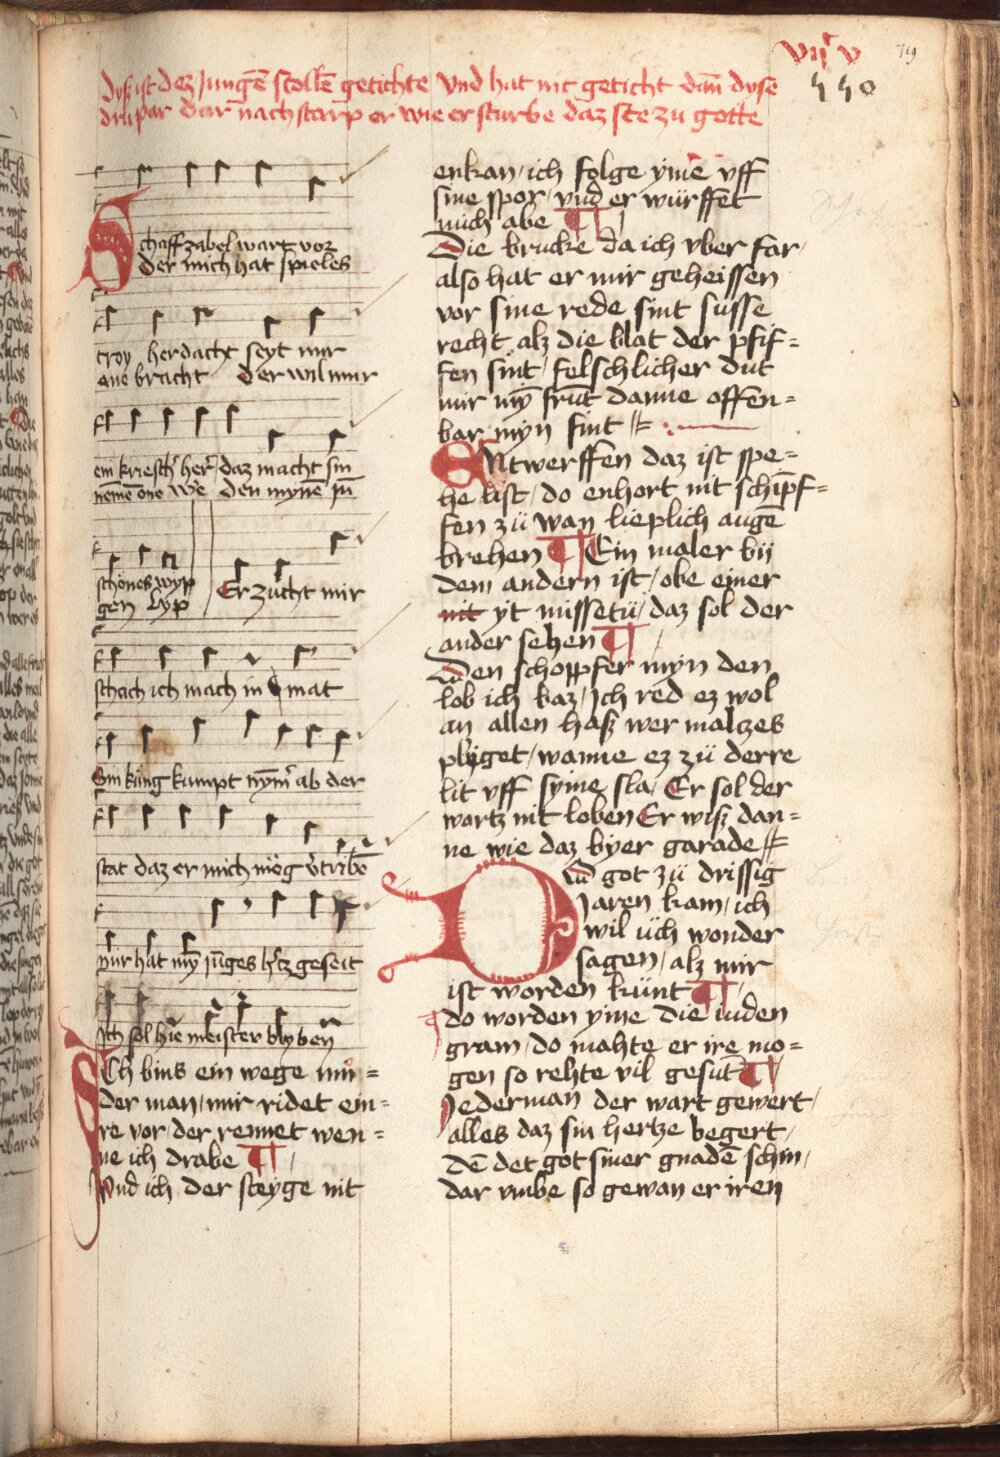 vijᶜ v
719
550
Dyß ist dez Jungē stollē getichte vnd hat nit geticht dañ dyse
dru par dar nach starp er wie er sturbe daz ste zu gotte
Schaffzabel wart vor
der mich hat spieles
troy her dacht seyt mir
ane bracht Der wil mir
ein kriesch her daz macht sin
nemē one we den mynē jū
schönes wyp Er zücht mir
gen lyp
schach ich mach in mat
Ein küng kumpt nȳm̄ ab der
stat daz er mich mög vtribē
mir hat mȳ jūges htz geseit
Ich sol hie meister blyben
Ich bins ein wege mü=
der man / mir ridet ein=
re vor / der rennet wen=
ne ich drabe
Vnd ich der steyge nit
enkan / ich folge yme vff
sine spor / vnd er würffet
mich abe
Die brucke da ich vber far /
also hat er mir geheissen
vor sine rede sint süsse
recht alz die blat der pfif=
fen sint / felschlicher dut
mir mȳ frūt danne offen=
bar myn fint
Entwerffen daz ist spe=
he list / do enhort nit schīpf=
fen zü wan lieplich augē
brehen Ein maler bij
dem andern ist / obe einer
nit yt missetü / daz sol der
ander sehen
Den schoppfer myn den
lob ich baz / Ich red ez wol
an allen haß wer maltzes
plyget / wanne ez zü derre
lit vff syme sla / Er sol der
wortz nit loben Er wiß dan=
ne wie daz byer garade
Dü got zü drissig
Jaren kam / ich
wil üch wonder
sagen / alz mir
ist worden künt
do worden yme die iuden
gram / do mahte er ire mo=
gen so rehte vil gesūt
Jederman der wart gewert /
alles daz sin hertze begert /
Dē det got siner gnadē schin /
dar vmbe so gewan er iren